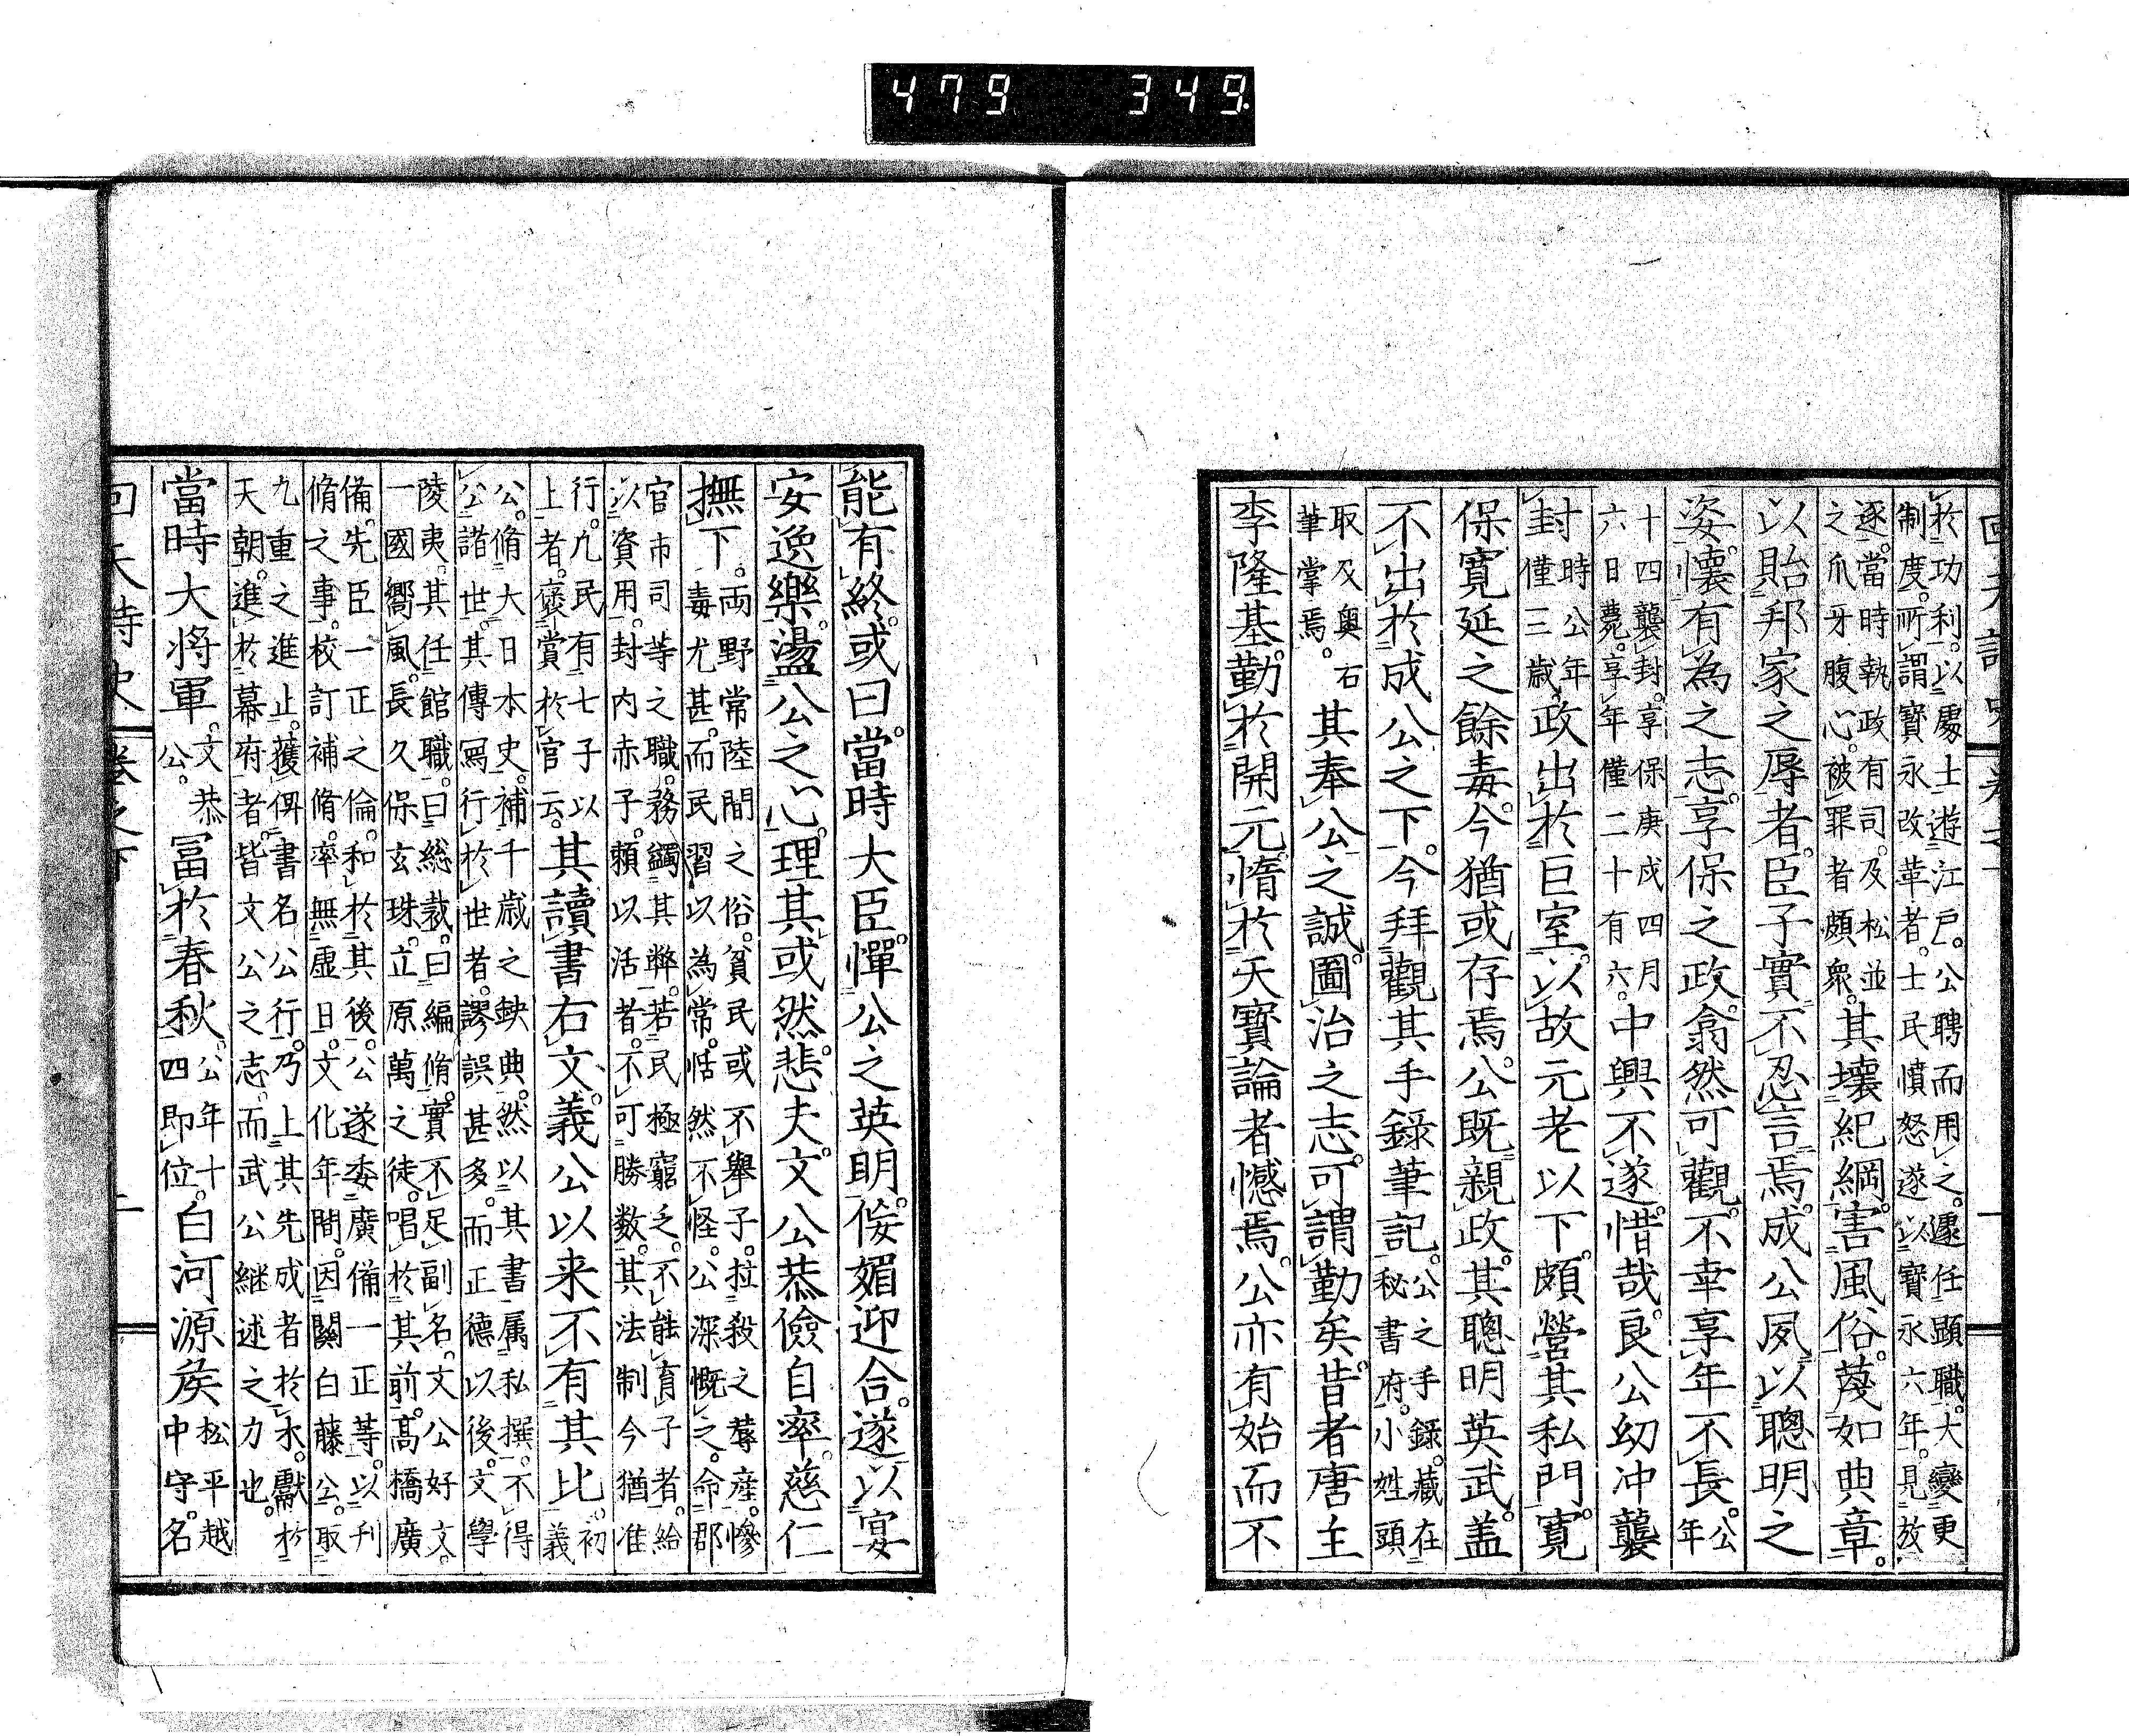 479 349
於功利。以處士遊江戸。公聘而用之。遽任顯職。大變更
制度。所謂寶永改革者。士民憤怒遂以寶永六年。見放
逐。當時執政有司。及松並
之爪牙腹心。被罪者頗衆。其壞紀綱。害風俗。蔑如典章。
以貽邦家之辱者。臣子實不忍言焉。成公夙以聰明之
姿。懷有為之志。享保之政。翕然可觀。不幸享年不長。公年
十四襲封。享保庚戌四月
六日薨。享年僅二十有六。中興不遂。惜哉。良公幼冲襲
封時公年僅三歳。政出於巨室。以故元老以下。頗營其私門。寛
保寛延之餘毒。今猶或存焉。公既親政。其聰明英武。盖
不出於成公之下。今拜觀其手錄筆記。公之手錄。藏在
秘書府。小姓頭
取及奥右
筆掌焉。其奉公之誠。圖治之志。可謂勤矣。昔者唐主
李隆基。勤於開元。惰於天寶論者憾焉。公亦有始而不
能有終。或曰。當時大臣。憚公之英明。侫媚迎合。遂以宴
安逸樂。盪公之心。理其或然。悲夫。文公恭儉自率。慈仁
撫下。両野常陸間之俗。貧民或不舉子。拉殺之蓐産。惨
毒尤甚。而民習以為常。恬然不怪。公深慨之。命郡
官市司等之職。務蠲其弊。若民極窮乏。不能育子者。給
以資用。封内赤子。頼以活者。不可勝數。其法制今猶准
行。凢民有七子以
上者。褒賞於官云。其讀書右文。義公以来不有其比。初義
公。脩大日本史。補千歳之鈌典。然以其書属私撰。不得
公諸世。其傳寫行於世者。謬誤甚多。而正德以後。文學
陵夷。其任館職。曰総裁。曰編脩。實不足副名。文公好文。
一國嚮風。長久保玄珠。立原萬之徒。唱於其前。高橋廣
備。先臣一正之倫。和於其後。公遂委廣備一正等。以刊
脩之事。校訂補脩。率無虚日。文化年間。因關白藤公。取
九重之進止。獲俾書名公行。乃上其先成者於木。獻於
天朝。進於幕府者。皆文公之志。而武公継述之力也。
當時大将軍。文恭公。冨於春秋。公年十四即位。白河源矦松平越中守。名
回天詩史 卷之下 二